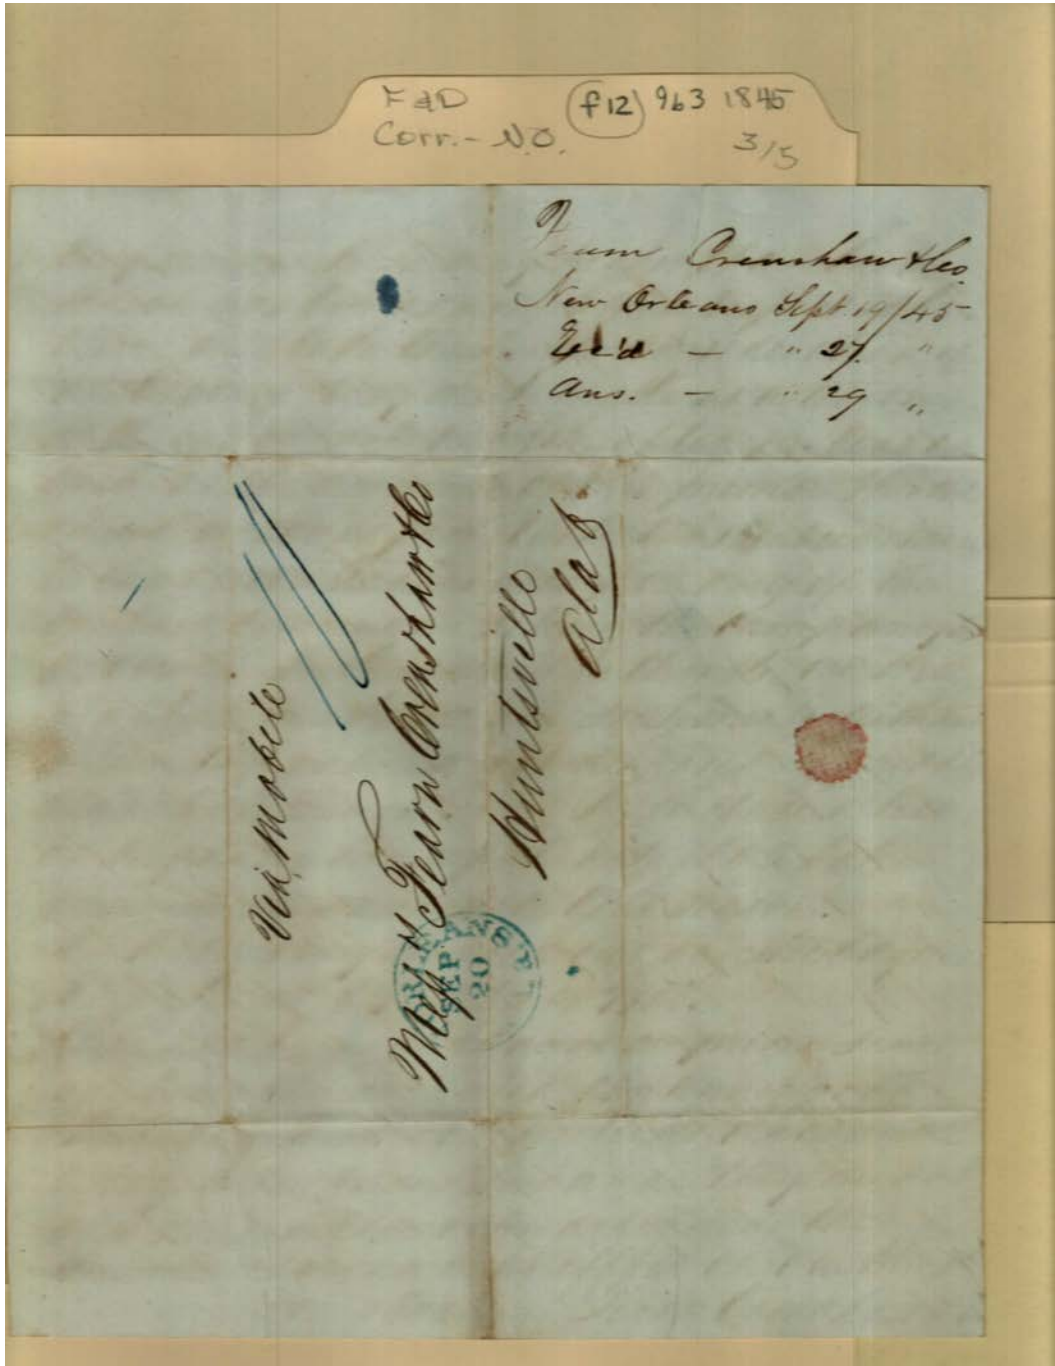 F&D
Corr. - N.O.
f12 963 1845
3/5
Crenshaw & Co
New Orleans Sept 19/45
Rec'd — " 27 "
Ans. — " 29 "
Via Mobile
10
Messrs Fearn Crenshaw & Co
Huntsville
Ala
ORLEANS
SEP
20
La